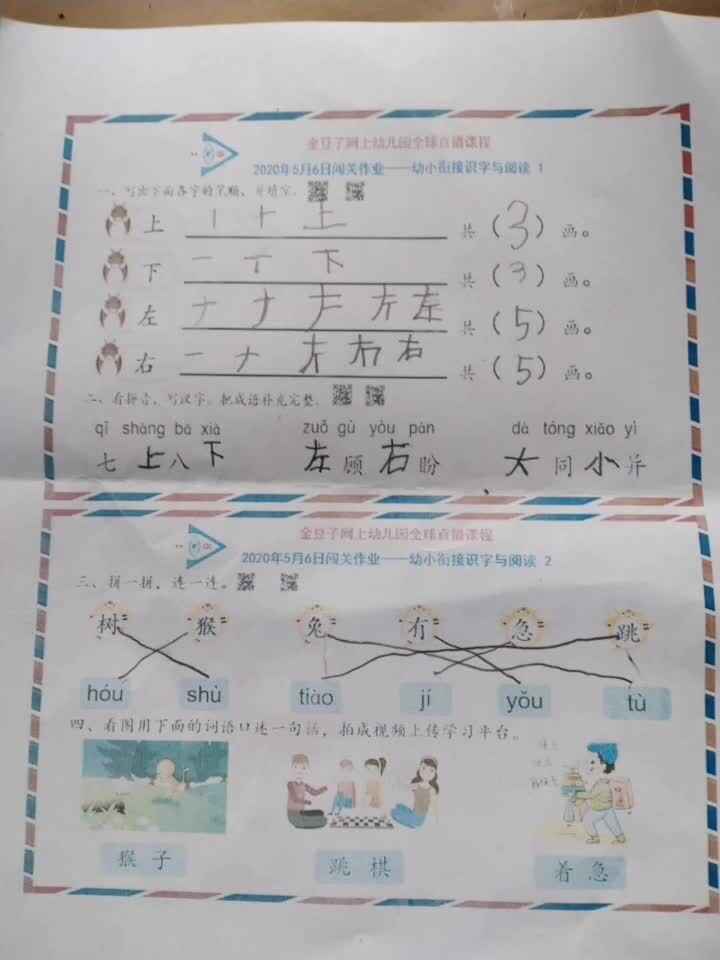 金豆子网上幼儿园全球直播课程
2020年5月6日闯关作业——幼小衔接识字与阅读 1
一、写出下面各字的笔顺，并填空。
上 丨 ⺊ 上 共（3）画。
下 一 丅 下 共（3）画。
左 𠂇 左 共（5）画。
右 一 𠂇 右 共（5）画。
二、看拼音，写汉字。把成语补充完整。
qī shàng bā xià zuǒ gù yòu pàn dà tóng xiǎo yì
七上八下 左顾右盼 大同小异
金豆子网上幼儿园全球直播课程
2020年5月6日闯关作业——幼小衔接识字与阅读 2
三、拼一拼，连一连。
树 猴 兔 有 急 跳
hóu shù tiào jí yǒu tù
四、看图用下面的词语口述一句话，拍成视频上传学习平台。
猴子 跳棋 着急